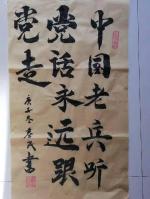 中国老兵听
党话永远跟
党走
庚子冬春民書